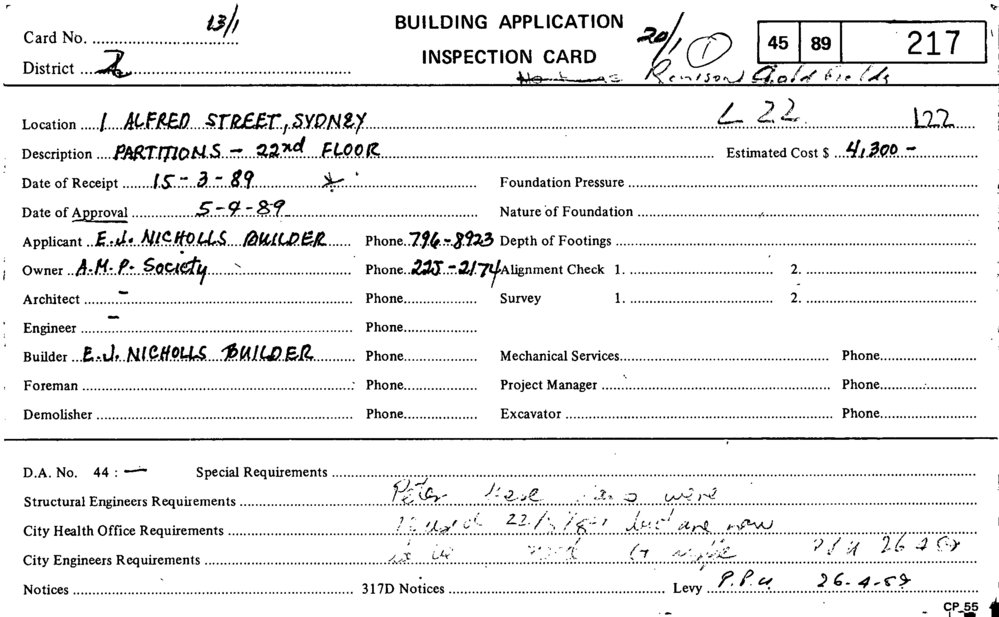 Card No. 13/1
BUILDING APPLICATION
INSPECTION CARD
20/1 1
45 89 217
District 2
Renison Gold Fields
Location 1 ALFRED STREET, SYDNEY L 22 L22
Description PARTITIONS - 22nd FLOOR Estimated Cost $ 4,300 -
Date of Receipt 15-3-89 Foundation Pressure
Date of Approval 5-4-89 Nature of Foundation
Applicant E.J. NICHOLLS BUILDER Phone 796-8923 Depth of Footings
Owner A.M.P. Society Phone 225-2174 Alignment Check 1. 2.
Architect - Phone Survey 1. 2.
Engineer - Phone
Builder E.J. NICHOLLS BUILDER Phone Mechanical Services Phone
Foreman Phone Project Manager Phone
Demolisher Phone Excavator Phone
D.A. No. 44 : — Special Requirements
Structural Engineers Requirements Peter were
City Health Office Requirements 22/3/89 but are now
City Engineers Requirements to be 26 4 89
Notices 317D Notices Levy P.P.U 26-4-89
CP 55